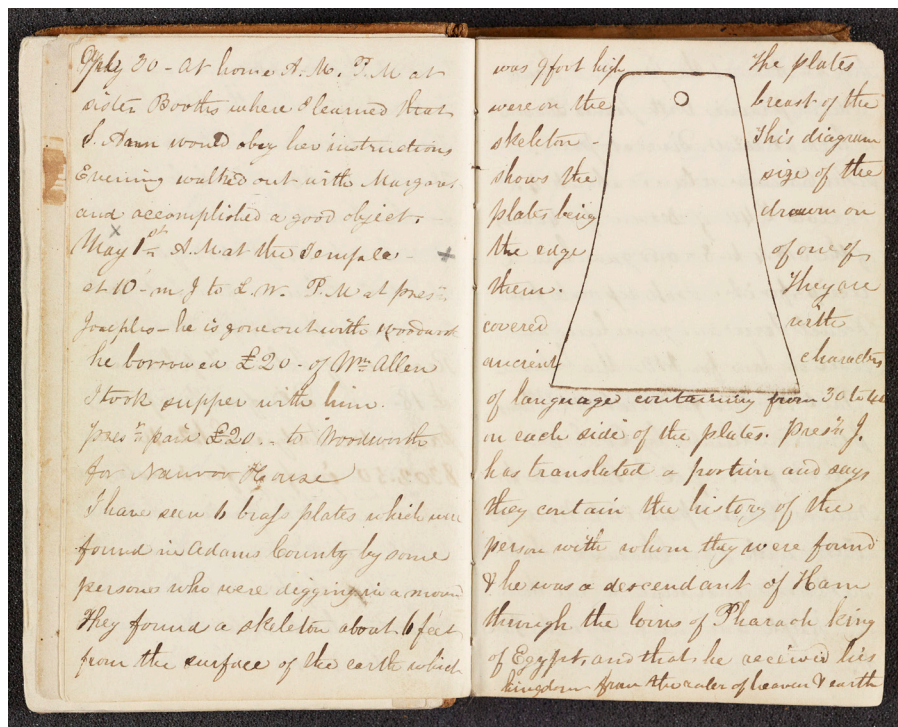 April 30 - At home A. M. P. M at
sister Booths where I learned that
S. Aann would obey her instructions
Evening walked out with Margaret
and accomplished a good object. -
May 1st A. M at the Temple -
at 10 - m J to L. W. P. M at prest.
Josephs - he is gone out with woodworth
he borrowed £20 - of Wm Allen
I took supper with him.
prest. paid £20 - to Woodworth
for Nauvoo House
I have seen 6 brass plates which were
found in Adams County by some
persons who were digging in a mound
They found a skeleton about 6 feet
from the surface of the earth which
was 9 foot high The plates
were on the breast of the
skeleton - This diagram
shows the size of the
plates being drawn on
the edge of one of
them. They are
covered with
ancient characters
of language containing from 30 to 40
on each side of the plates. Prest. J.
has translated a portion and says
they contain the history of the
person with whom they were found
& he was a descendant of Ham
through the loins of Pharaoh king
of Egypt, and that he received his
kingdom from the ruler of heaven & earth